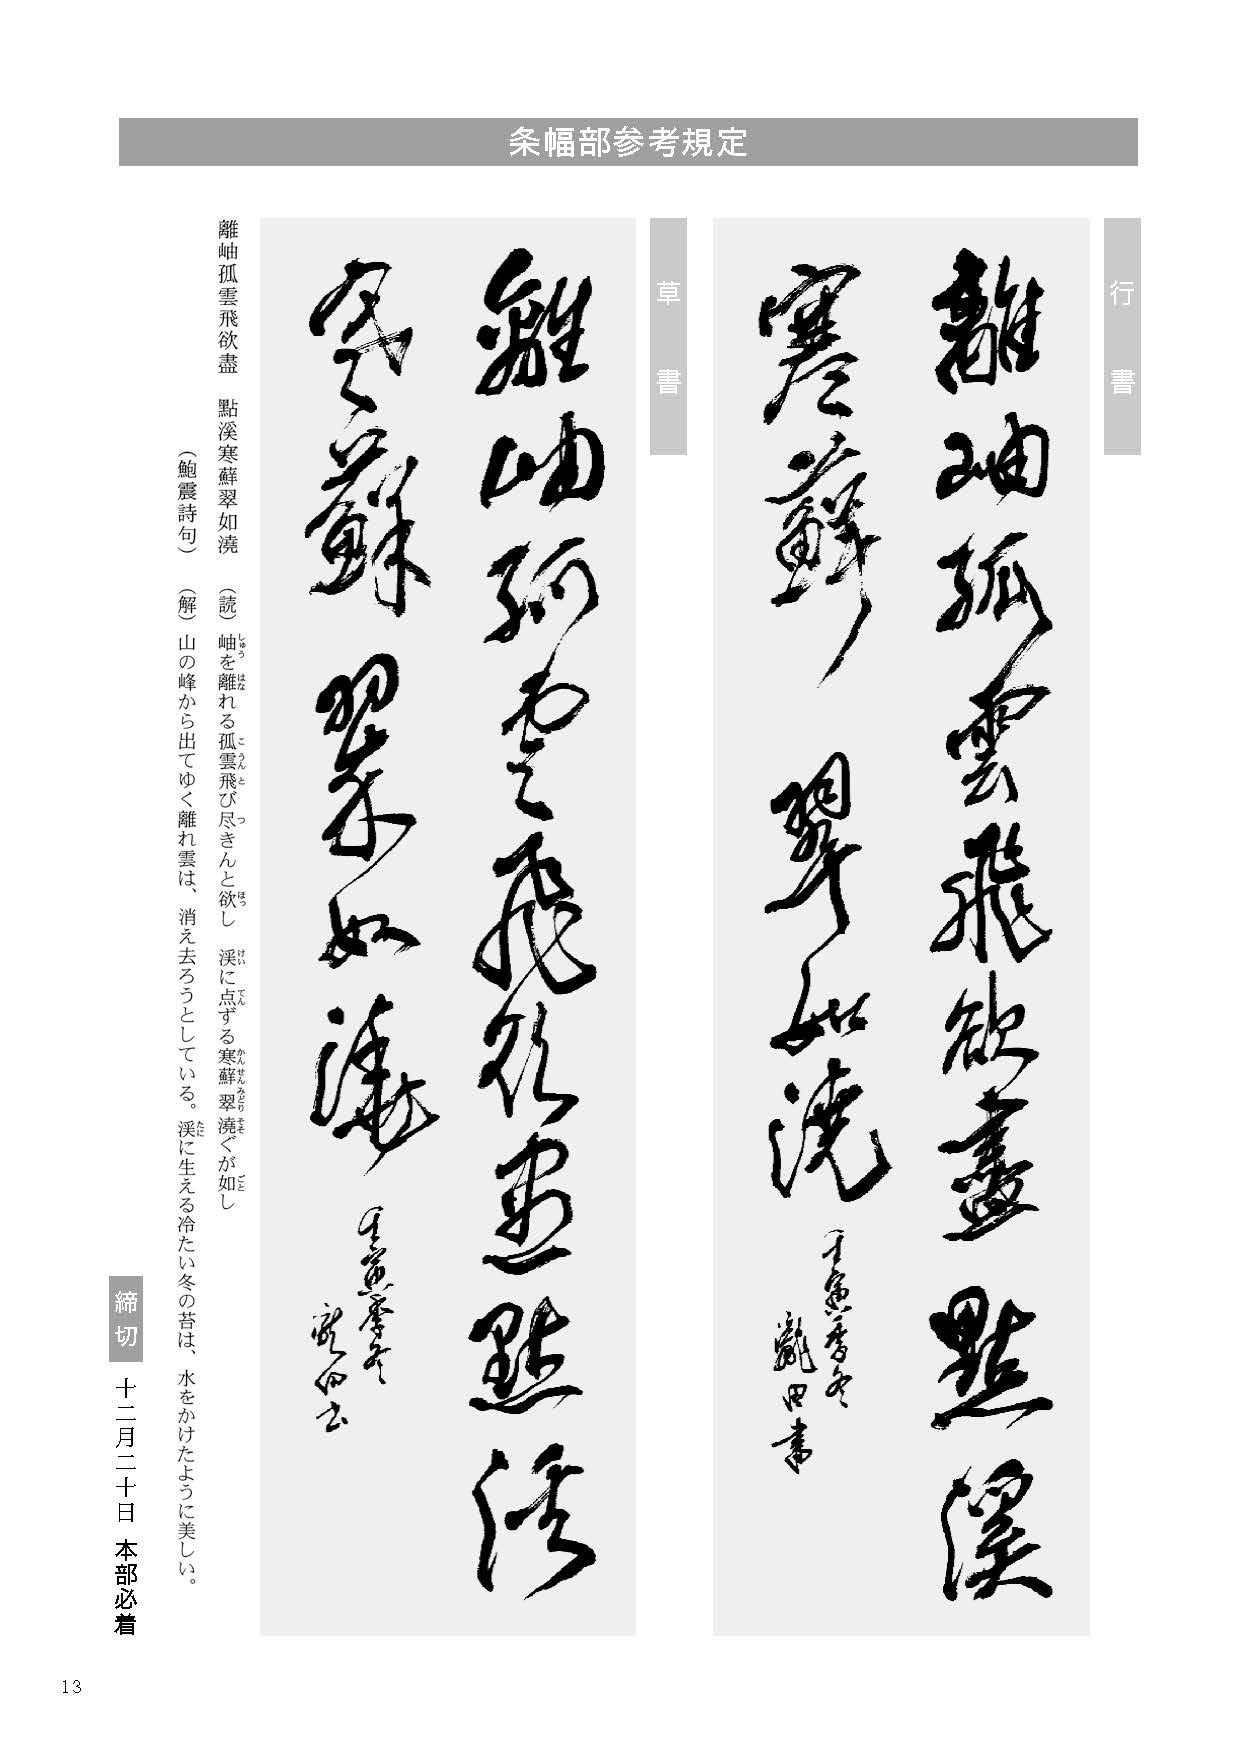 条幅部参考規定
行書
離岫孤雲飛欲盡點溪
寒蘚翠如澆
壬寅季冬
瀧田書
草書
離岫孤雲飛欲盡點溪
寒蘚翠如澆
壬寅季冬
瀧田書
離岫孤雲飛欲盡　點溪寒蘚翠如澆　（読）岫を離れる孤雲飛び尽きんと欲し　渓に点ずる寒蘚翠澆ぐが如し
しゅう はな こ うん と つ ほっ けい てん かん せん みどり そそ ごと
（鮑震詩句）　（解）山の峰から出てゆく離れ雲は、消え去ろうとしている。渓に生える冷たい冬の苔は、水をかけたように美しい。
たに
締切　十二月二十日　本部必着
13